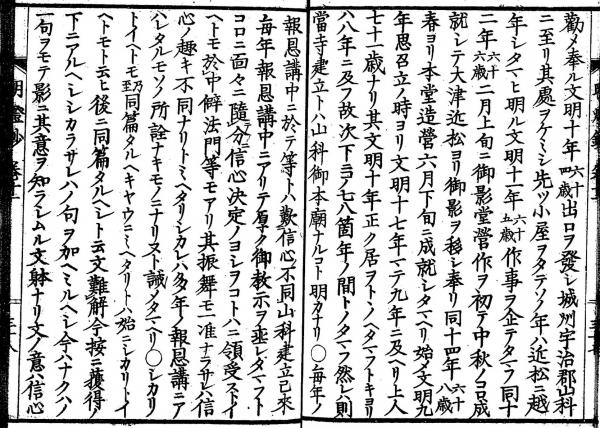 勸メ奉ル文明十年六十四歳出口ヲ發シ城州宇治郡山科
ニ至リ其處ヲケミシ先ツ小屋ヲタテソノ年ハ近松ニ越
年シタマヒ明ル文明十一年六十五歳作事ヲ企テタマフ同十
二年六十六歳二月上旬ニ御影堂營作ヲ初テ中秋ノコロ成
就シテ大津近松ヨリ御影ヲ移シ奉リ同十四年六十八歳
春ヨリ本堂造營六月下旬ニ成就シタマヘリ始メ文明九
年思召立ノ時ヨリ文明十七年マテ九年ニ及ヘリ上人
七十一歳ナリ其文明十年正ク居ヲトシタマフトキヨリ
八年ニ及フ故次下ニコノ七八箇年ノ間トノタマフ然レハ則
當寺建立トハ山科御本廟ナルコト明カナリ〇毎年ノ
報恩講中ニ於テ等トハ歎信心不同山科建立已來
毎年報恩講中ニアリテ厚ク御教示ヲ垂レタマフト
コロニ面々ニ隨分ニ信心決定ノヨシヲコトハニ領受スト
ヘトモ於中解法門等モアリ其振舞モ一准ナラサレハ信
心ノ趣キ不同ナリトミヘタリシカレハ多年ノ報恩講ニア
ヘレタルモソノ所詮ナキモノニナリスト誡メタマヘリ〇シカリ
トイヘトモ乃至同篇タルヘキヤウニミヘタリトハ始ニシカリトイ
ヘトモト云ヒ後ニ同篇タルヘシト云文難解今按ニ獲得ノ
下ニアルヘシシカラサレハノ句ヲ加ヘミルヘシ今ハナクハノ
一句ヲモテ影ニ其意ヲ知ラシムル文躰ナリ文ノ意ハ信心
明證鈔 卷十二